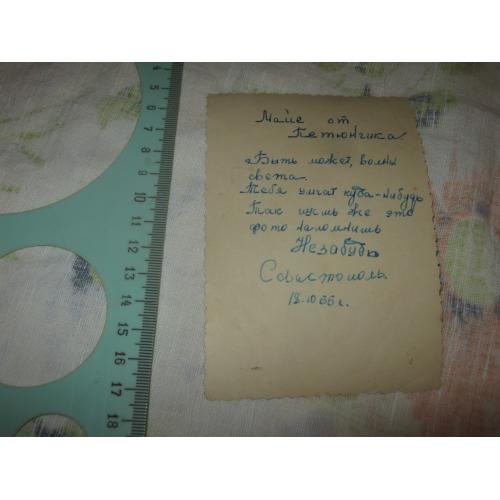 Майе от
Петюнчика
Быть может, волны
света
Тебя умчат куда-нибудь
Так пусть же это
фото напомнишь
Незабудь
Севастополь.
18.10 55 г.
4
5
6
7
8
9
10
11
12
13
14
15
16
17
18